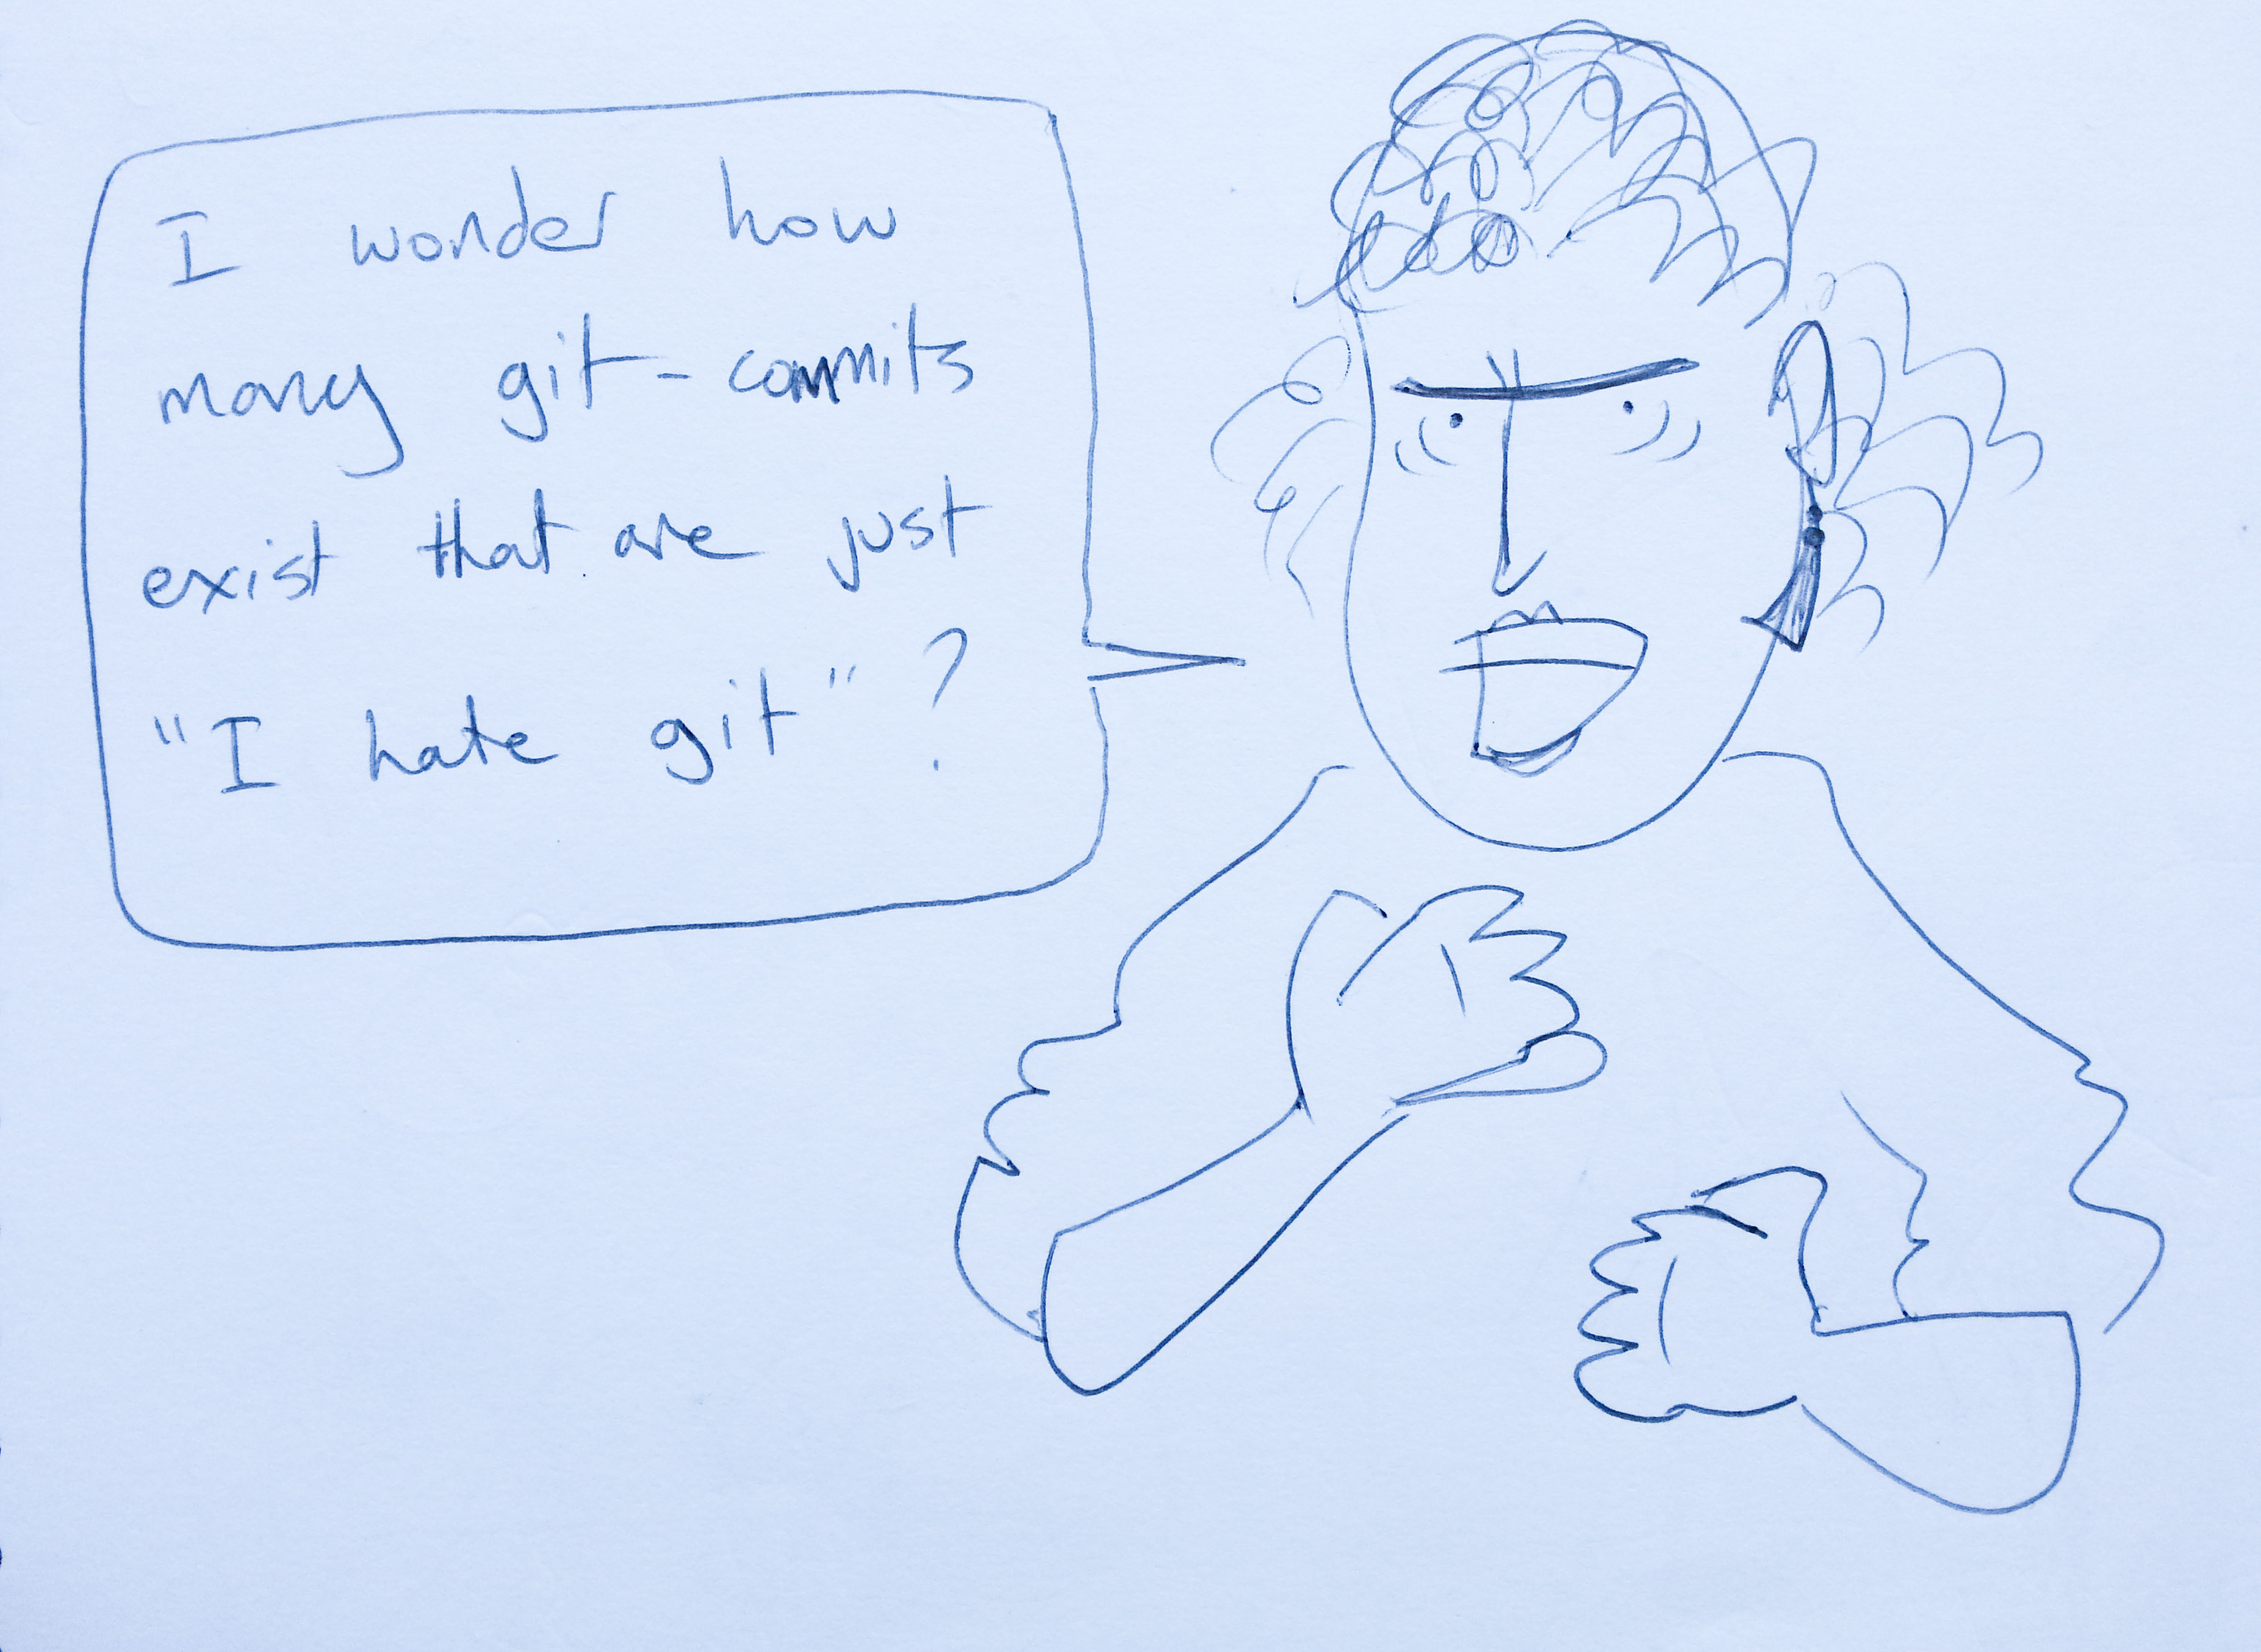 I wonder how
many git-commits
exist that are just
"I hate git"?